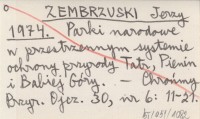 ZEMBRZUSKI Jerzy
1974. Parki narodowe
w przestrzennym systemie
ochrony przyrody Tatr, Pienin
i Babiej Góry. – Chrońmy
Przyr. Ojcz. 30, nr 6: 11-21.